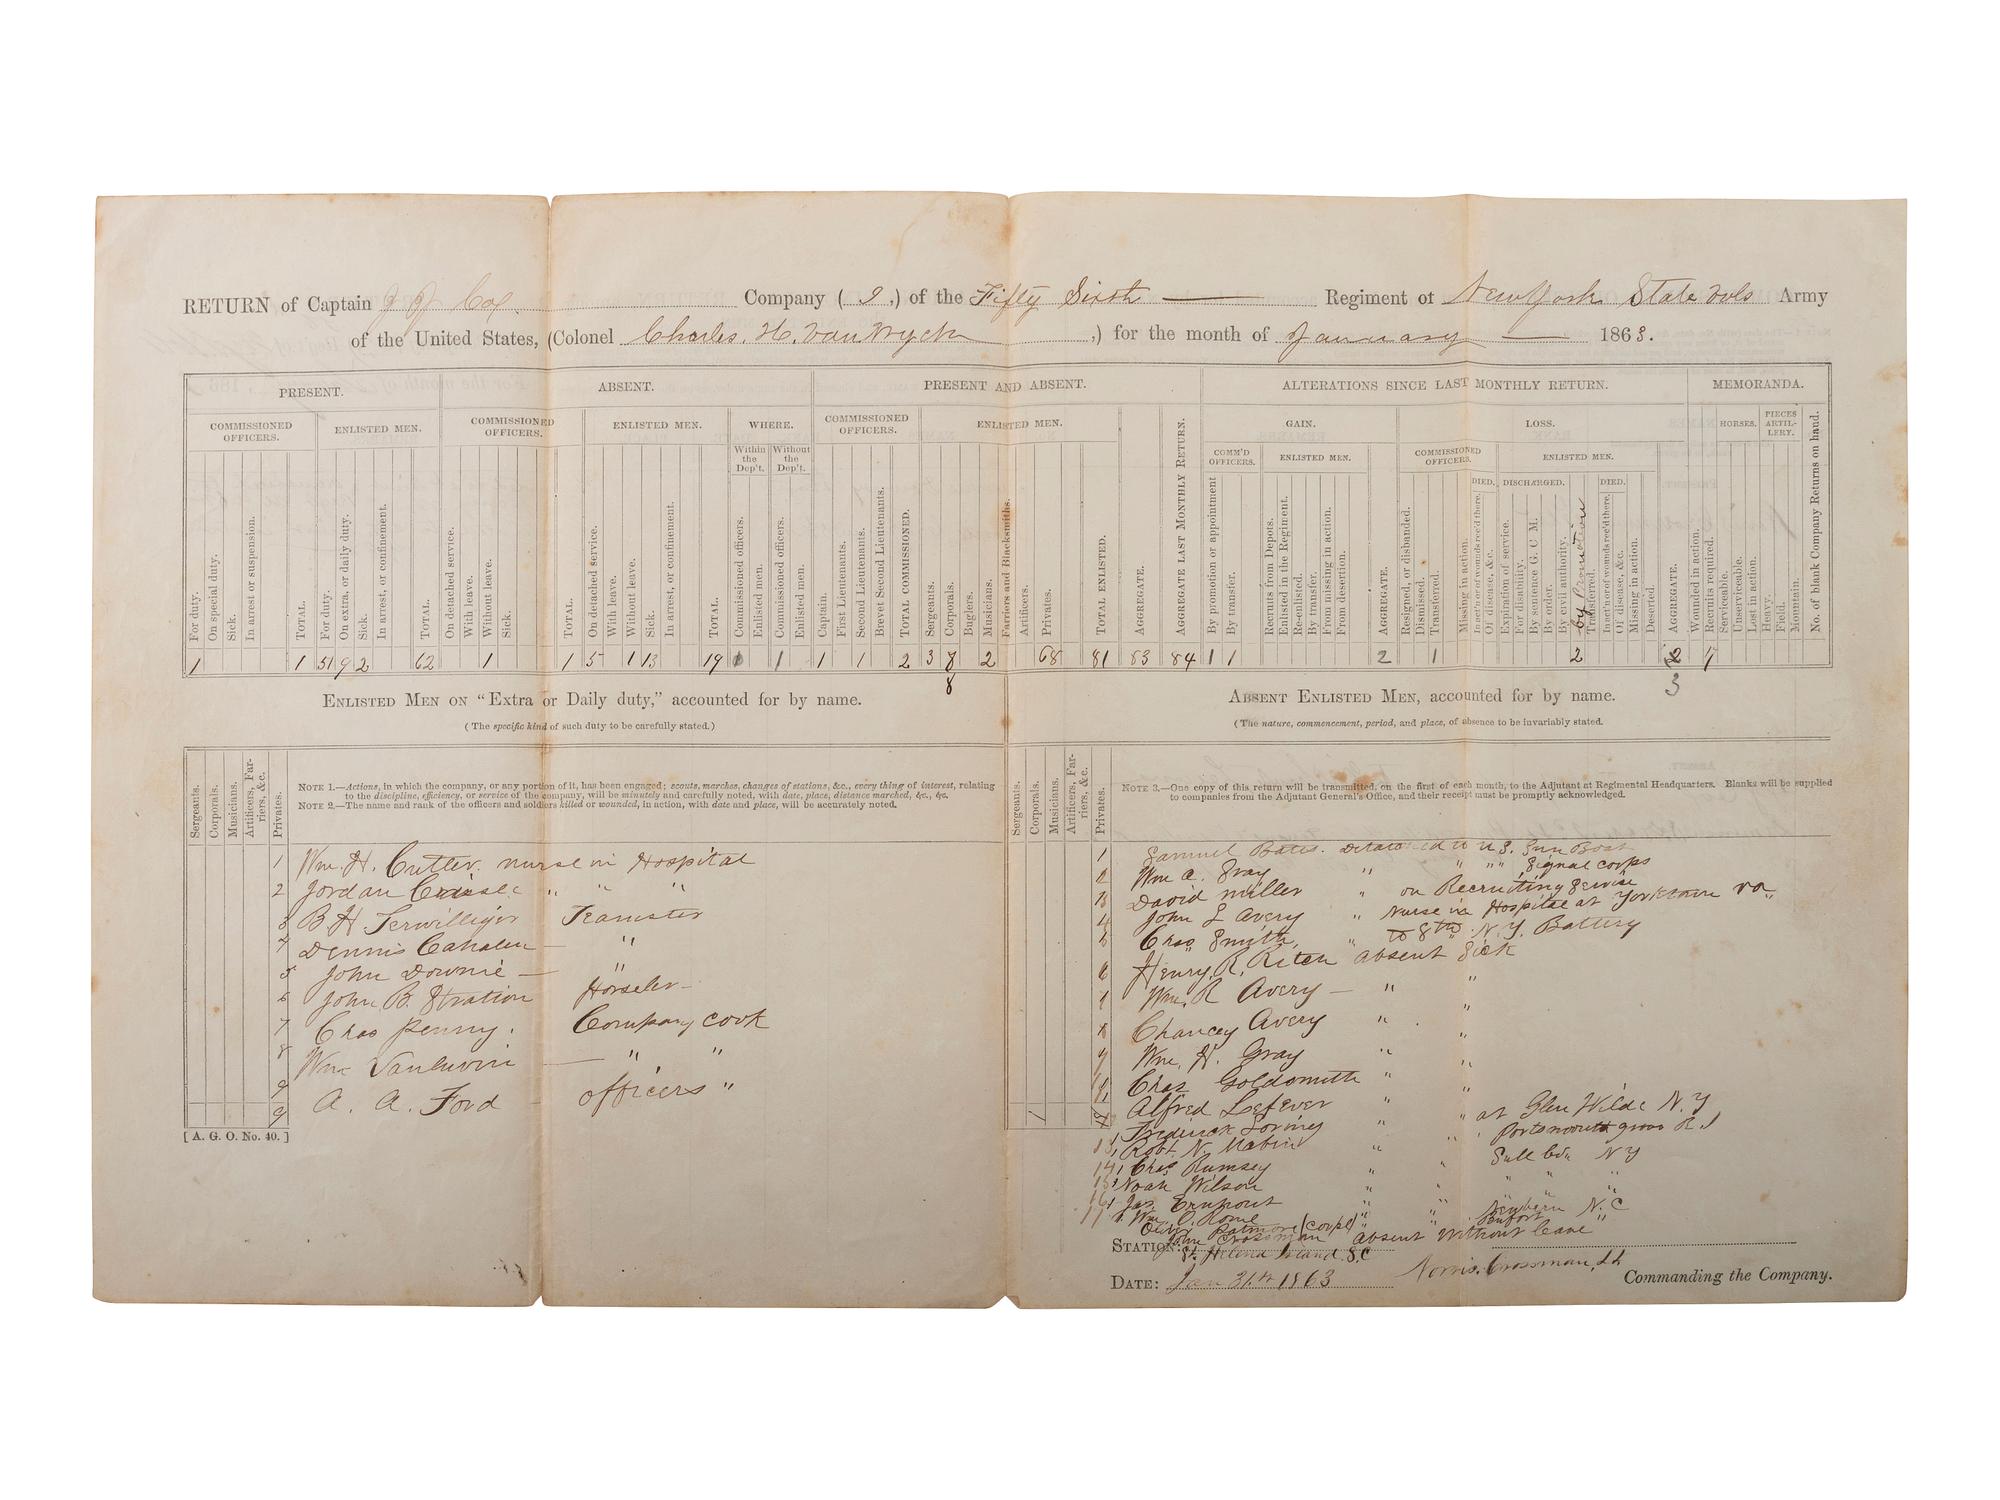 RETURN of Captain J J Cox Company ( I ,) of the Fifty Sixth Regiment of New York State Vols Army
of the United States, (Colonel Charles. H. Van Wyck ,) for the month of January 1863.
PRESENT. ABSENT. PRESENT AND ABSENT. ALTERATIONS SINCE LAST MONTHLY RETURN. MEMORANDA.
COMMISSIONED OFFICERS. ENLISTED MEN. COMMISSIONED OFFICERS. ENLISTED MEN. WHERE. COMMISSIONED OFFICERS. ENLISTED MEN. GAIN. LOSS. HORSES. PIECES ARTILLERY.
Within the Dep't. Without the Dep't. COMM'D OFFICERS. ENLISTED MEN. COMMISSIONED OFFICERS. ENLISTED MEN.
DIED. DISCHARGED. DIED.
For duty.
On special duty.
Sick.
In arrest or suspension.
TOTAL.
For duty.
On extra, or daily duty.
Sick.
In arrest, or confinement.
TOTAL.
On detached service.
With leave.
Without leave.
Sick.
TOTAL.
On detached service.
With leave.
Without leave.
Sick.
In arrest, or confinement.
TOTAL.
Commissioned officers.
Enlisted men.
Commissioned officers.
Enlisted men.
Captain.
First Lieutenants.
Second Lieutenants.
Brevet Second Lieutenants.
TOTAL COMMISSIONED.
Sergeants.
Corporals.
Buglers.
Musicians.
Farriers and Blacksmiths.
Artificers.
Privates.
TOTAL ENLISTED.
AGGREGATE.
AGGREGATE LAST MONTHLY RETURN.
By promotion or appointment
By transfer.
Recruits from Depots.
Enlisted in the Regiment.
Re-enlisted.
By transfer.
From missing in action.
From desertion.
AGGREGATE.
Resigned, or disbanded.
Dismissed.
Transferred.
Missing in action.
In act'n or of wounds rec'd there.
Of disease, &c.
Expiration of service.
For disability.
By sentence G. C M.
By order.
By civil authority.
by Promotion
Transferred.
In act'n or of wounds rec'd there.
Of disease, &c.
Missing in action.
Deserted.
AGGREGATE.
Wounded in action.
Recruits required.
Serviceable.
Unserviceable.
Lost in action.
Heavy.
Field.
Mountain.
No. of blank Company Returns on hand.
1 1 51 9 2 62 1 1 5 1 13 19 1 1 1 2 3 2 68 81 83 84 1 1 2 1 2 2
8 3
ENLISTED MEN ON "Extra or Daily duty," accounted for by name.
(The specific kind of such duty to be carefully stated.)
Sergeants.
Corporals.
Musicians.
Artificers, Farriers, &c.
Privates.
NOTE 1.—Actions, in which the company, or any portion of it, has been engaged; scouts, marches, changes of stations, &c., every thing of interest, relating
to the discipline, efficiency, or service of the company, will be minutely and carefully noted, with date, place, distance marched, &c., &c.
NOTE 2.—The name and rank of the officers and soldiers killed or wounded, in action, with date and place, will be accurately noted.
1 Wm. H. Cutler. nurse in Hospital
2 Jordan " " "
3 B H Terwilliger Teamster
4 Dennis Cahalen "
5 John Downie "
6 John B. Stratton Horseler
7 Chas Penny. Company cook
8 Wm " "
9 A. A. Ford officers "
9
[A. G. O. No. 40.]
ABSENT ENLISTED MEN, accounted for by name.
(The nature, commencement, period, and place, of absence to be invariably stated.
Sergeants.
Corporals.
Musicians.
Artificers, Farriers, &c.
Privates.
NOTE 3.—One copy of this return will be transmitted, on the first of each month, to the Adjutant at Regimental Headquarters. Blanks will be supplied
to companies from the Adjutant General's Office, and their receipt must be promptly acknowledged.
1 Samuel Bates. Detatched to U.S. Gun Boat
2 Wm a. Gray " " " Signal corps
3 David miller " on Recruiting Servise
4 John L Avery " Nurse in Hospital at Yorktown va
5 Chas Smith, " to 8th N. Y. Battery
6 Henry. R. Ritch absent Sick
7 Wm. R Avery " "
8 Chancey Avery " "
9 Wm. H. Gray " "
Chas Goldsmith " "
Alfred Lefever " " at Glen Wilde N. Y
Frederick Loring " " Portsmouth grove R. I
13 Robt. N. Mabin " " Sull Co. N Y
14 Chas Rumsey " " " "
15 Noah Wilson " " " "
16 Jas. Erupout " " Newbern N. C
Wm. O. Rome " " Beufort "
Oliver (Corpl)
John Crossman absent without leave
STATION: St. Helena Island S.C
DATE: Jan 31st 1863 Norris. Crossman, Lt Commanding the Company.